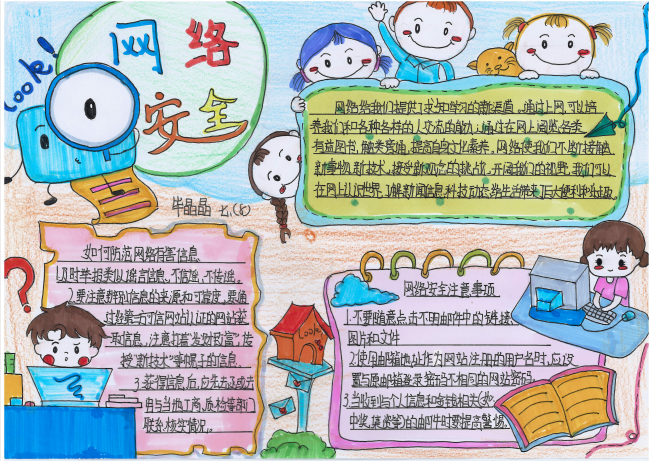 Look!
网络
安全
毕晶晶 七、(6)
网络给我们提供了求知学习的新渠道，通过上网，可以培
养我们和各种各样的人交流的能力；通过在网上阅览各类
有益图书，触类旁通，提高自身文化素养。网络使我们不断接触
新事物、新技术，接受新观念的挑战，开阔我们的视野，我们可以
在网上认识世界，了解新闻信息，科技动态，给生活带来了巨大便利和乐趣。
如何防范网络有害信息
1.及时举报类似谣言信息，不信谣，不传谣。
2.要注意辨别信息的来源和可靠度，要通
过经第三方可信网站认证的网站获
取信息，注意打着“发财致富”、“传
授“新技术”等幌子的信息。
3.获得信息后，应先去函或去
电与当地工商、质检等部门
联系，核实情况。
Look
网络安全注意事项
1.不要随意点击不明邮件中的链接、
图片和文件
2.使用邮箱地址作为网站注册的用户名时，应设
置与原邮箱登录密码不相同的网站密码
3.当收到与个人信息和金钱相关(如
中奖、集资等)的邮件时要提高警惕